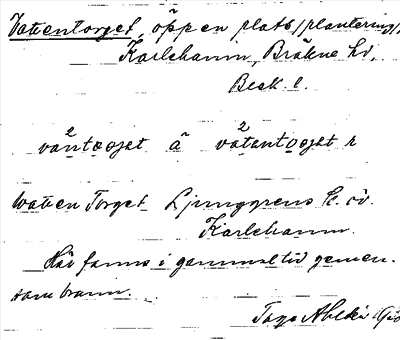 Vattentorget, öppen plats/plantering/,
Karlshamn, Bräkne hd,
Blek l.
vantorjet å vatantorjet
Watten Torget Ljunggrens
Karlshamn.
Här fanns i gammal tid gemen-
sam brunn.